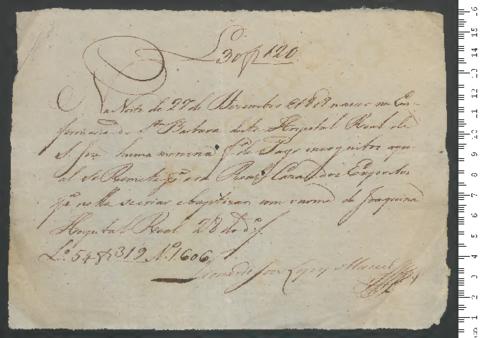 Lº 30 f 120
Na Noite de 27 de Dezembro de 1818 nasceu na En-
fermaria de Sta Barbara deste Hospital Real de
S. José huma menina fª de Pays incognitos a qu-
al se Remete pª a Real Caza dos Expostos
pª nella se criar e baptizar com o nome de Joaquina
Hospital Real 28 do dº
Lº 54 f 319 Nº 1606
José Lopes